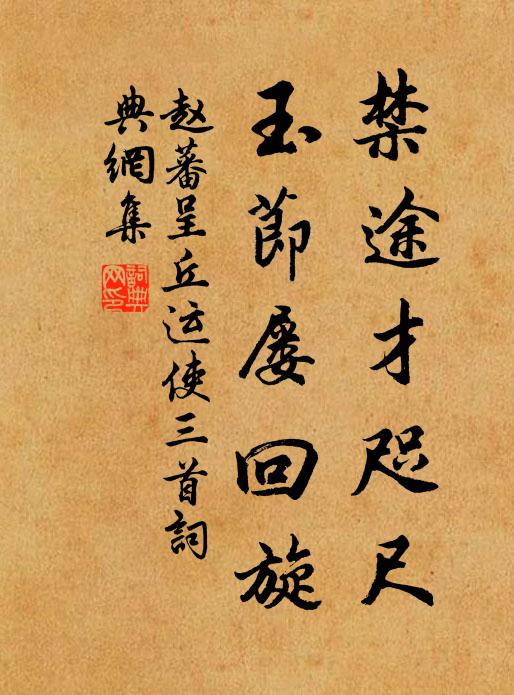 禁途才咫尺
玉節屡回旋
赵蕃呈丘运使三首詞
典網集
詞典网印